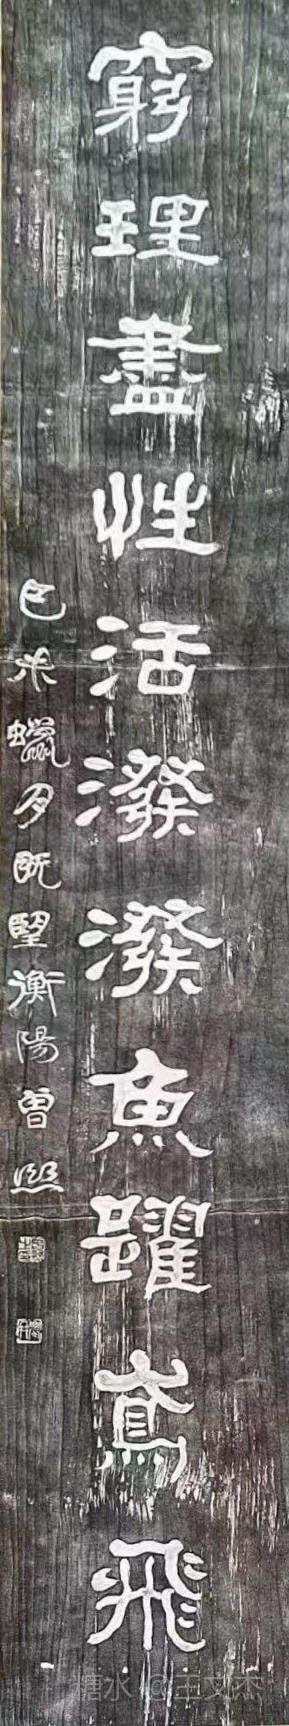 窮理盡性活潑潑魚躍鳶飛
己未蠟月既望衡陽曾熙
糖水 @王文杰